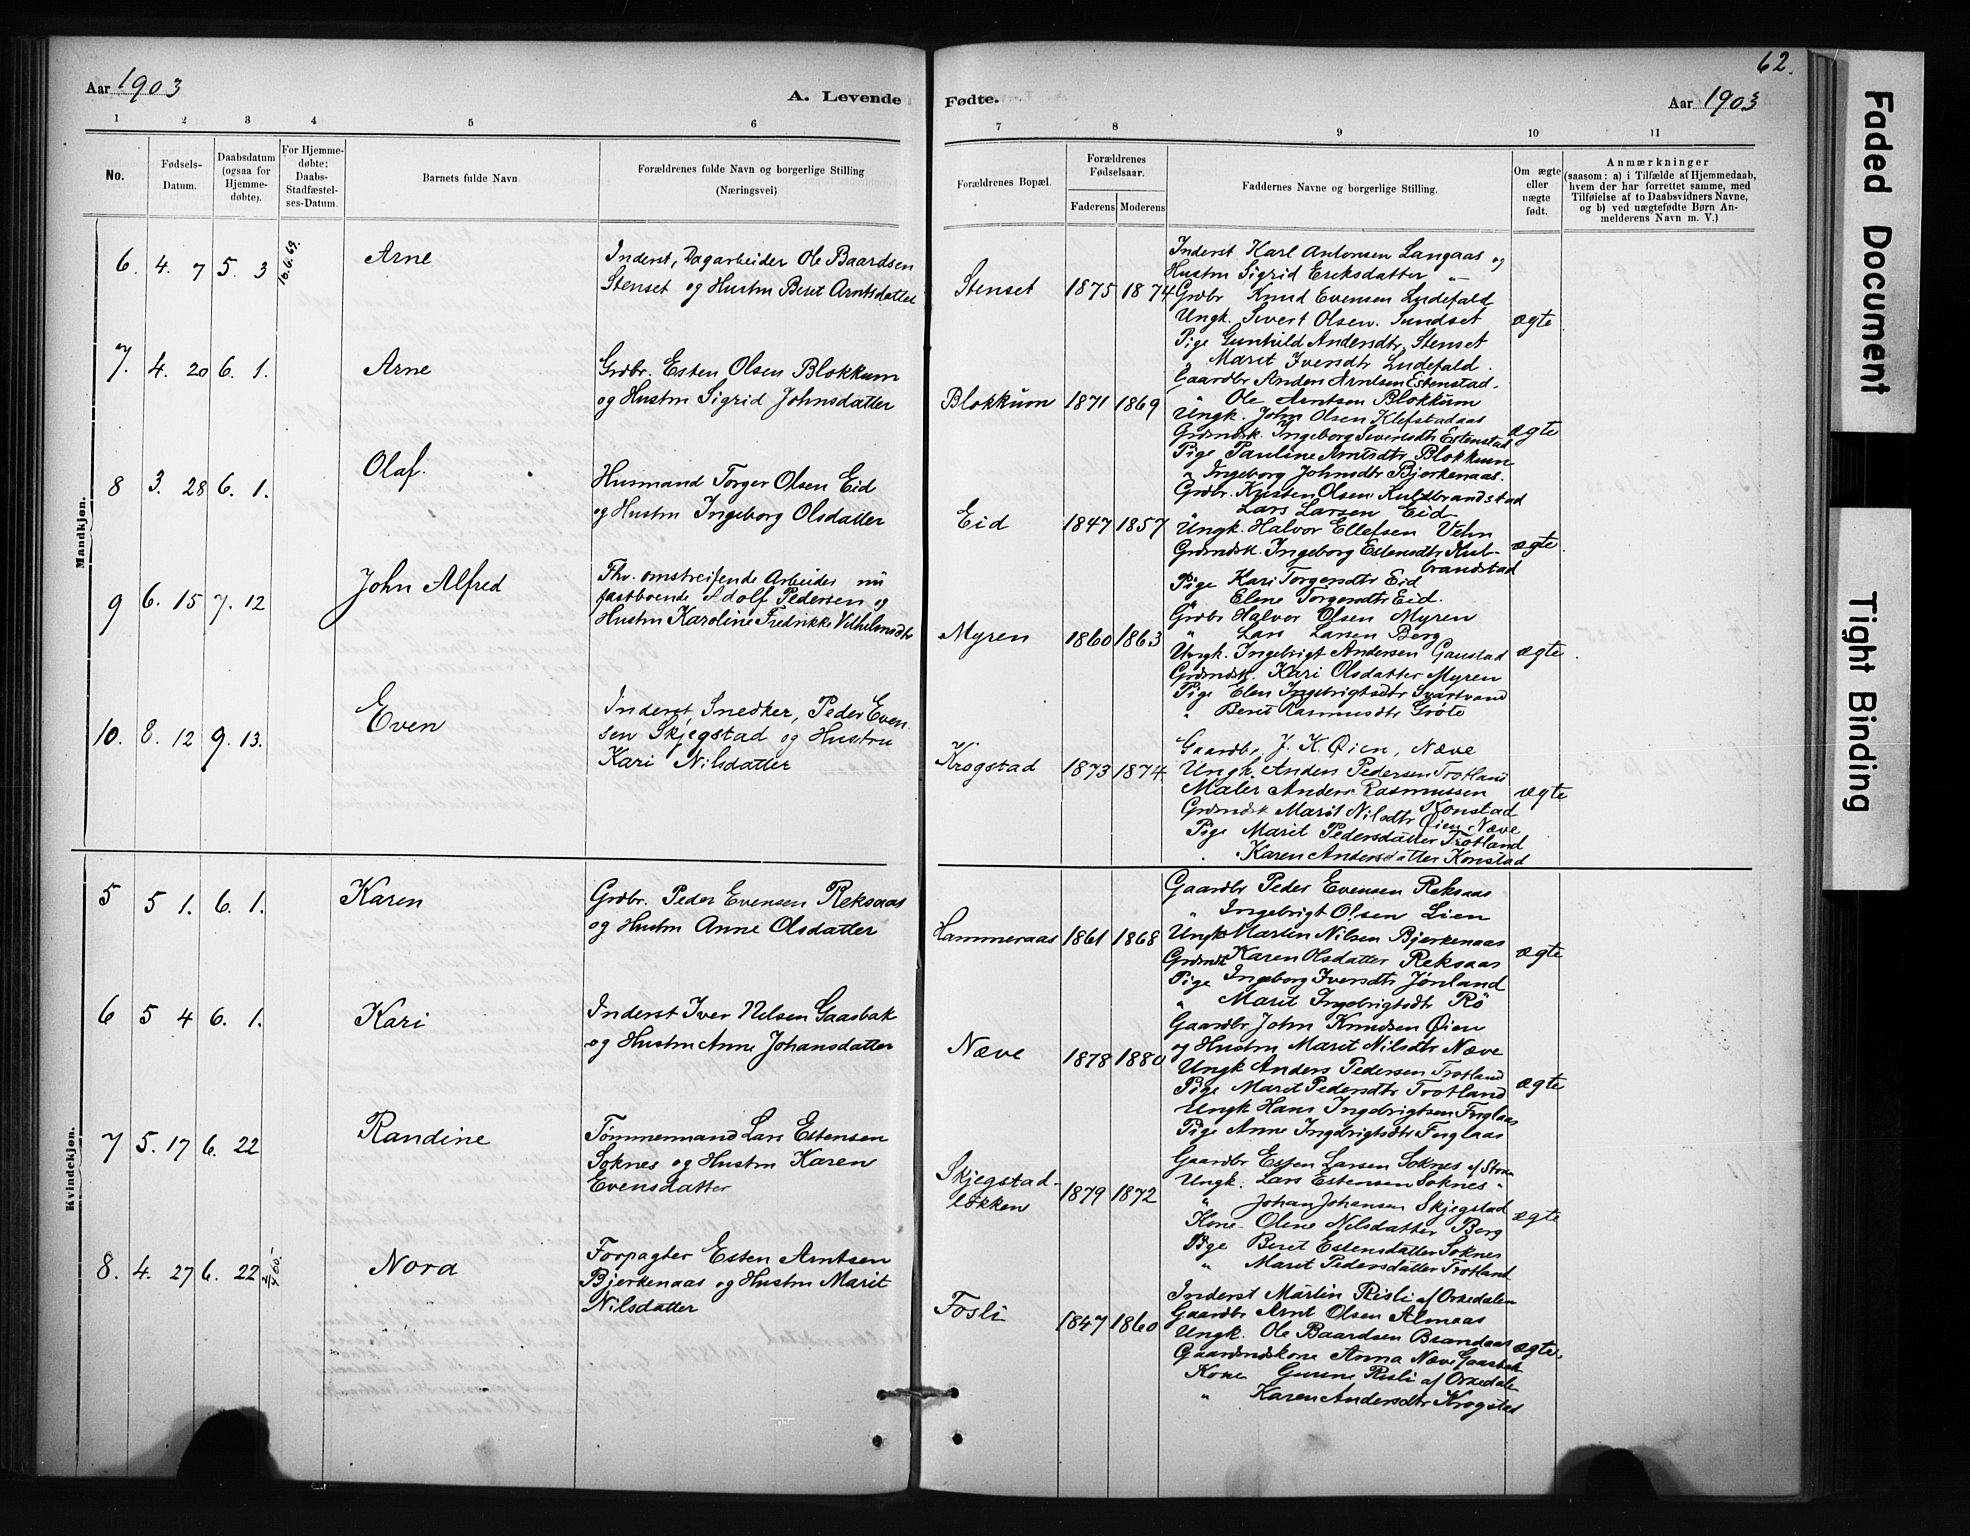 62.
Aar 1903
A. Levende
Fødte.
Aar 1903
1 2 3 4 5 6
7 8 9 10 11
No.
Fødsels-Datum.
Daabsdatum (ogsaa for Hjemmedøbte).
For Hjemmedøbte: Daabs-Stadfæstelses-Datum.
Barnets fulde Navn
Forældrenes fulde Navn og borgerlige Stilling
(Næringsvei)
Forældrenes Bopæl.
Forældrenes Fødselsaar.
Faderens Moderens
Faddernes Navne og borgerlige Stilling.
Om ægte eller uægte født.
Anmærkninger
(saasom: a) i Tilfælde af Hjemmedaab,
hvem der har forrettet samme, med
Tilføielse af to Daabsvidners Navne,
og b) ved uægtefødte Børn An-
melderens Navn m. V.)
Mandkjøn.
6. 4. 7 5. 3 16.6.69. Arne
Inderst, Dagarbeider Ole Baardsen
Stenset og Hustru Beret Arntsdatter
Stenset 1875 1874
Inderst Karl Antonsen Langaas og
Hustru Sigrid Eriksdatter "
Grdbr Knud Evensen Ludefald
Ungk. Sivert Olsen Sundset ægte
Pige Gunhild Andersdtr Stenset
" Marit Iversdtr Ludefald.
7. 4. 20 6. 1. Arne
Grdbr. Esten Olsen Blokkum
og Hustru Sigrid Johnsdatter
Blokkum 1871 1869
Gaardbr Anders Arntsen Estenstad.
" Ole Arntsen Blokkum
Ungk. John Olsen Klefstadaas
Grdmdsk. Ingeborg Siversdtr Estenstad ægte
Pige Pauline Arntsdtr Blokkum
" Ingeborg Johnsdtr Bjerkenaas.
8 3. 28 6. 1. Olaf.
Husmand Torger Olsen Eid
og Hustru Ingeborg Olsdatter
Eid 1847 1857
Grdbr. Kristen Olsen Kulbrandstad
" Lars Larsen Eid
Ungk. Halvor Ellefsen Vehn
Grdmdsk. Ingeborg Estensdtr Kul- ægte
brandstad
Pige Kari Torgersdtr Eid
" Elene Torgersdtr Eid.
9 6. 15 7. 12 John Alfred
Fhv. omstreifende Arbeider nu
fastboende Adolf Pedersen og
Hustru Karoline Fredrikke Vilhelmsdtr
Myren 1860 1863
Grdbr Halvor Olsen Myren
" Lars Larsen Berg
Ungk. Ingebrigt Andersen Gaustad ægte
Grdmdsk. Kari Olsdatter Myren
Pige Elen Ingebrigtsdtr Svartvand
" Beret Rasmusdtr Grøte
10. 8. 12 9. 13. Even
Inderst, Snedker, Peder Even
sen Skjegstad og Hustru
Kari Nilsdatter
Krogstad 1873 1874
Gaardbr. J. K. Øien, Næve
Ungk. Anders Pedersen Trotland
Maler Anders Rasmussen ægte
Konstad
Grdmdsk Marit Nilsdtr Øien, Næve
Pige Marit Pedersdatter Trotland
" Karen Andersdatter Konstad
Kvindekjøn.
5 5 1. 6. 1. Karen
Grdbr. Peder Evensen Reksaas
og Hustru Anne Olsdatter
Hammeraas 1861 1868
Gaardbr Peder Evensen Reksaas
" Ingebrigt Olsen Lien
Ungk Martin Nilsen Bjerkenaas
Karen Olsdatter Reksaas ægte
Pige Ingeborg Iversdtr Jønland
" Marit Ingebrigtsdtr Rø
6 5 4 6. 1. Kari
Inderst Iver Nilsen Gaasbak
og Hustru Anne Johansdatter
Næve 1878 1880
Gaardbr John Knudsen Øien
og Hustru Marit Nilsdtr Næve
Ungk Anders Pedersen Trotland
Pige Marit Pedersdtr Trotland ægte
Ungk Hans Ingebrigtsen Fuglaas
Pige Anne Ingebrigtsdtr Fuglaas
7 5. 17 6. 22 Randine
Tømmermand Lars Estensen
Soknes og Hustru Karen
Evensdatter
Skjegstad-
løkken 1879 1872
Gaardbr Esten Larsen Soknes af Støren
Ungk. Lars Estensen Soknes "
" Johan Johansen Skjegstad ægte
Kone Oline Nilsdatter Berg
Pige Beret Estensdatter Soknes
" Marit Pedersdatter Trotland
8. 4. 27 6. 22 Nora
Forpagter Esten Arntsen
Bjerkenaas og Hustru Marit
Nilsdatter
Fosli 1847 1860
Inderst Martin Risli af Orkedalen
Gaardbr Arnt Olsen Almaas
Ungk. Ole Baardsen Brandaas ægte.
Gaardmdskone Anna Næve Gaasbak
Kone Gurine Risli af Orkedalen
" Karen Andersdtr Krogstad
Faded Document
Tight Binding